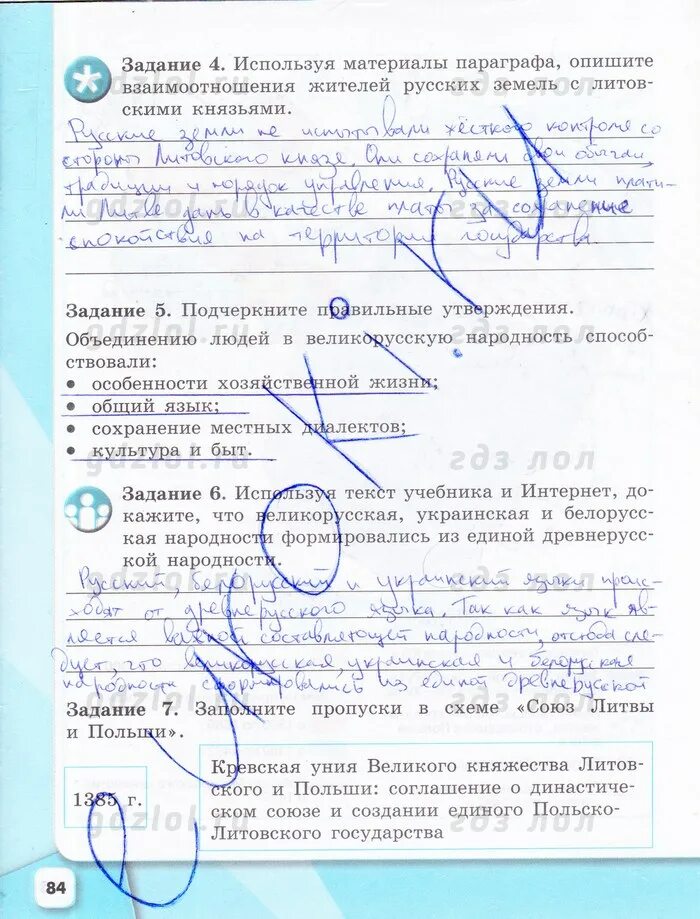 Задание 4. Используя материалы параграфа, опишите
взаимоотношения жителей русских земель с литов-
скими князьями.
Русские земли не испытывали жёсткого контроля со
стороны Литовского князе. Они сохраняли свои обычаи,
традиции и порядок управления. Русские земли плати-
ли Литве дань в качестве платы за сохранение
спокойствия на территории государства.
Задание 5. Подчеркните правильные утверждения.
Объединению людей в великорусскую народность способ-
ствовали:
• особенности хозяйственной жизни;
• общий язык;
• сохранение местных диалектов;
• культура и быт.
Задание 6. Используя текст учебника и Интернет, до-
кажите, что великорусская, украинская и белорус-
ская народности формировались из единой древнерус-
ской народности.
Русский, белорусский и украинский языки проис-
ходят от древнерусского языка. Так как язык яв-
ляется важной составляющей народности, отсюда сле-
дует, что великорусская, украинская и белорусская
народности сформировались из единой древнерусской
Задание 7. Заполните пропуски в схеме «Союз Литвы
и Польши».
1385 г.
Кревская уния Великого княжества Литов-
ского и Польши: соглашение о династиче-
ском союзе и создании единого Польско-
Литовского государства
84
gdzlol.ru
гдз лол